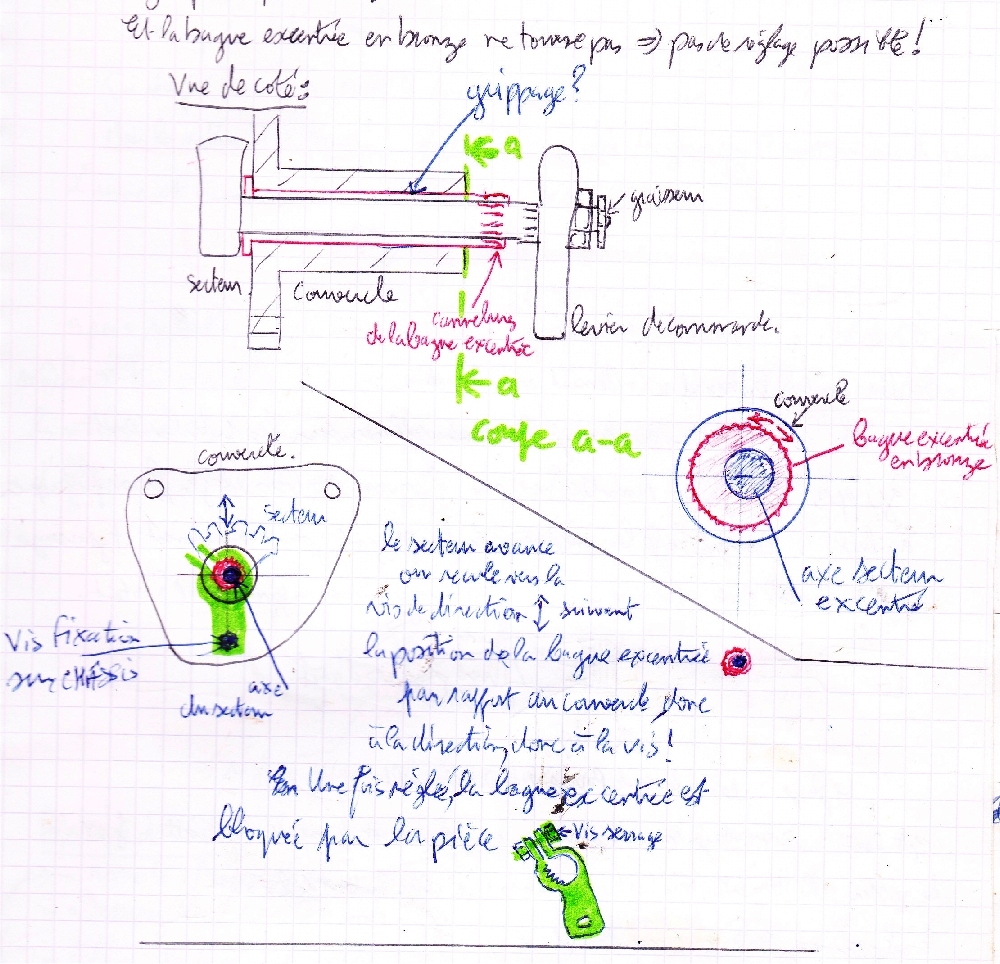 Et la bague excentrée en bronze ne tourne pas => pas de réglage possible!
Vue de coté:
grippage?
a
graisseur
secteur
couvercle
cannelures
de la bague excentrée
levier de commande.
a
coupe a-a
couvercle
bague excentrée
en bronze
couvercle.
secteur
axe secteur
excentré
le secteur avance
ou recule vers la
vis de direction ↕ suivant
la position de la bague excentrée
par rapport au couvercle donc
à la direction, donc à la vis!
Vis fixation
sur CHÂSSIS
axe
du secteur
Une fois réglé, la bague excentrée est
bloquée par la pièce
Vis serrage